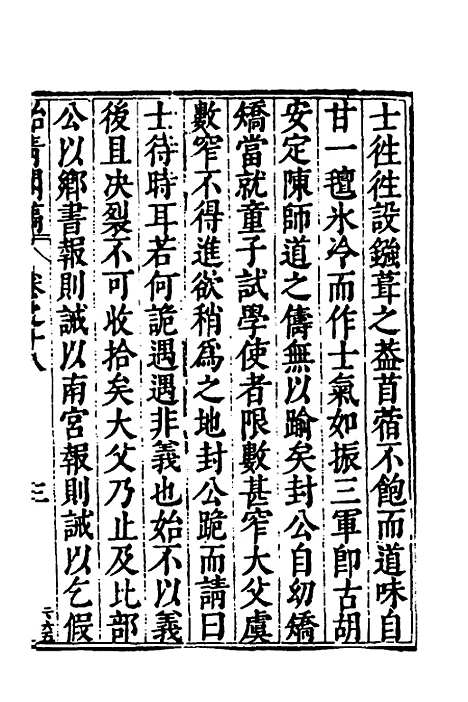 士徃徃設鏹葺之葢苜蓿不飽而道味自
甘一氊氷冷而作士氣如振三軍卽古胡
安定陳師道之儔無以踰矣封公自幼矯
矯當就童子試學使者限數甚窄大父虞
數窄不得進欲稍爲之地封公跪而請曰
士待時耳若何詭遇遇非義也始不以義
後且决裂不可收拾矣大父乃止及比部
公以鄉書報則誡以南宮報則誡以乞假
始青閣稿 卷之十八 三